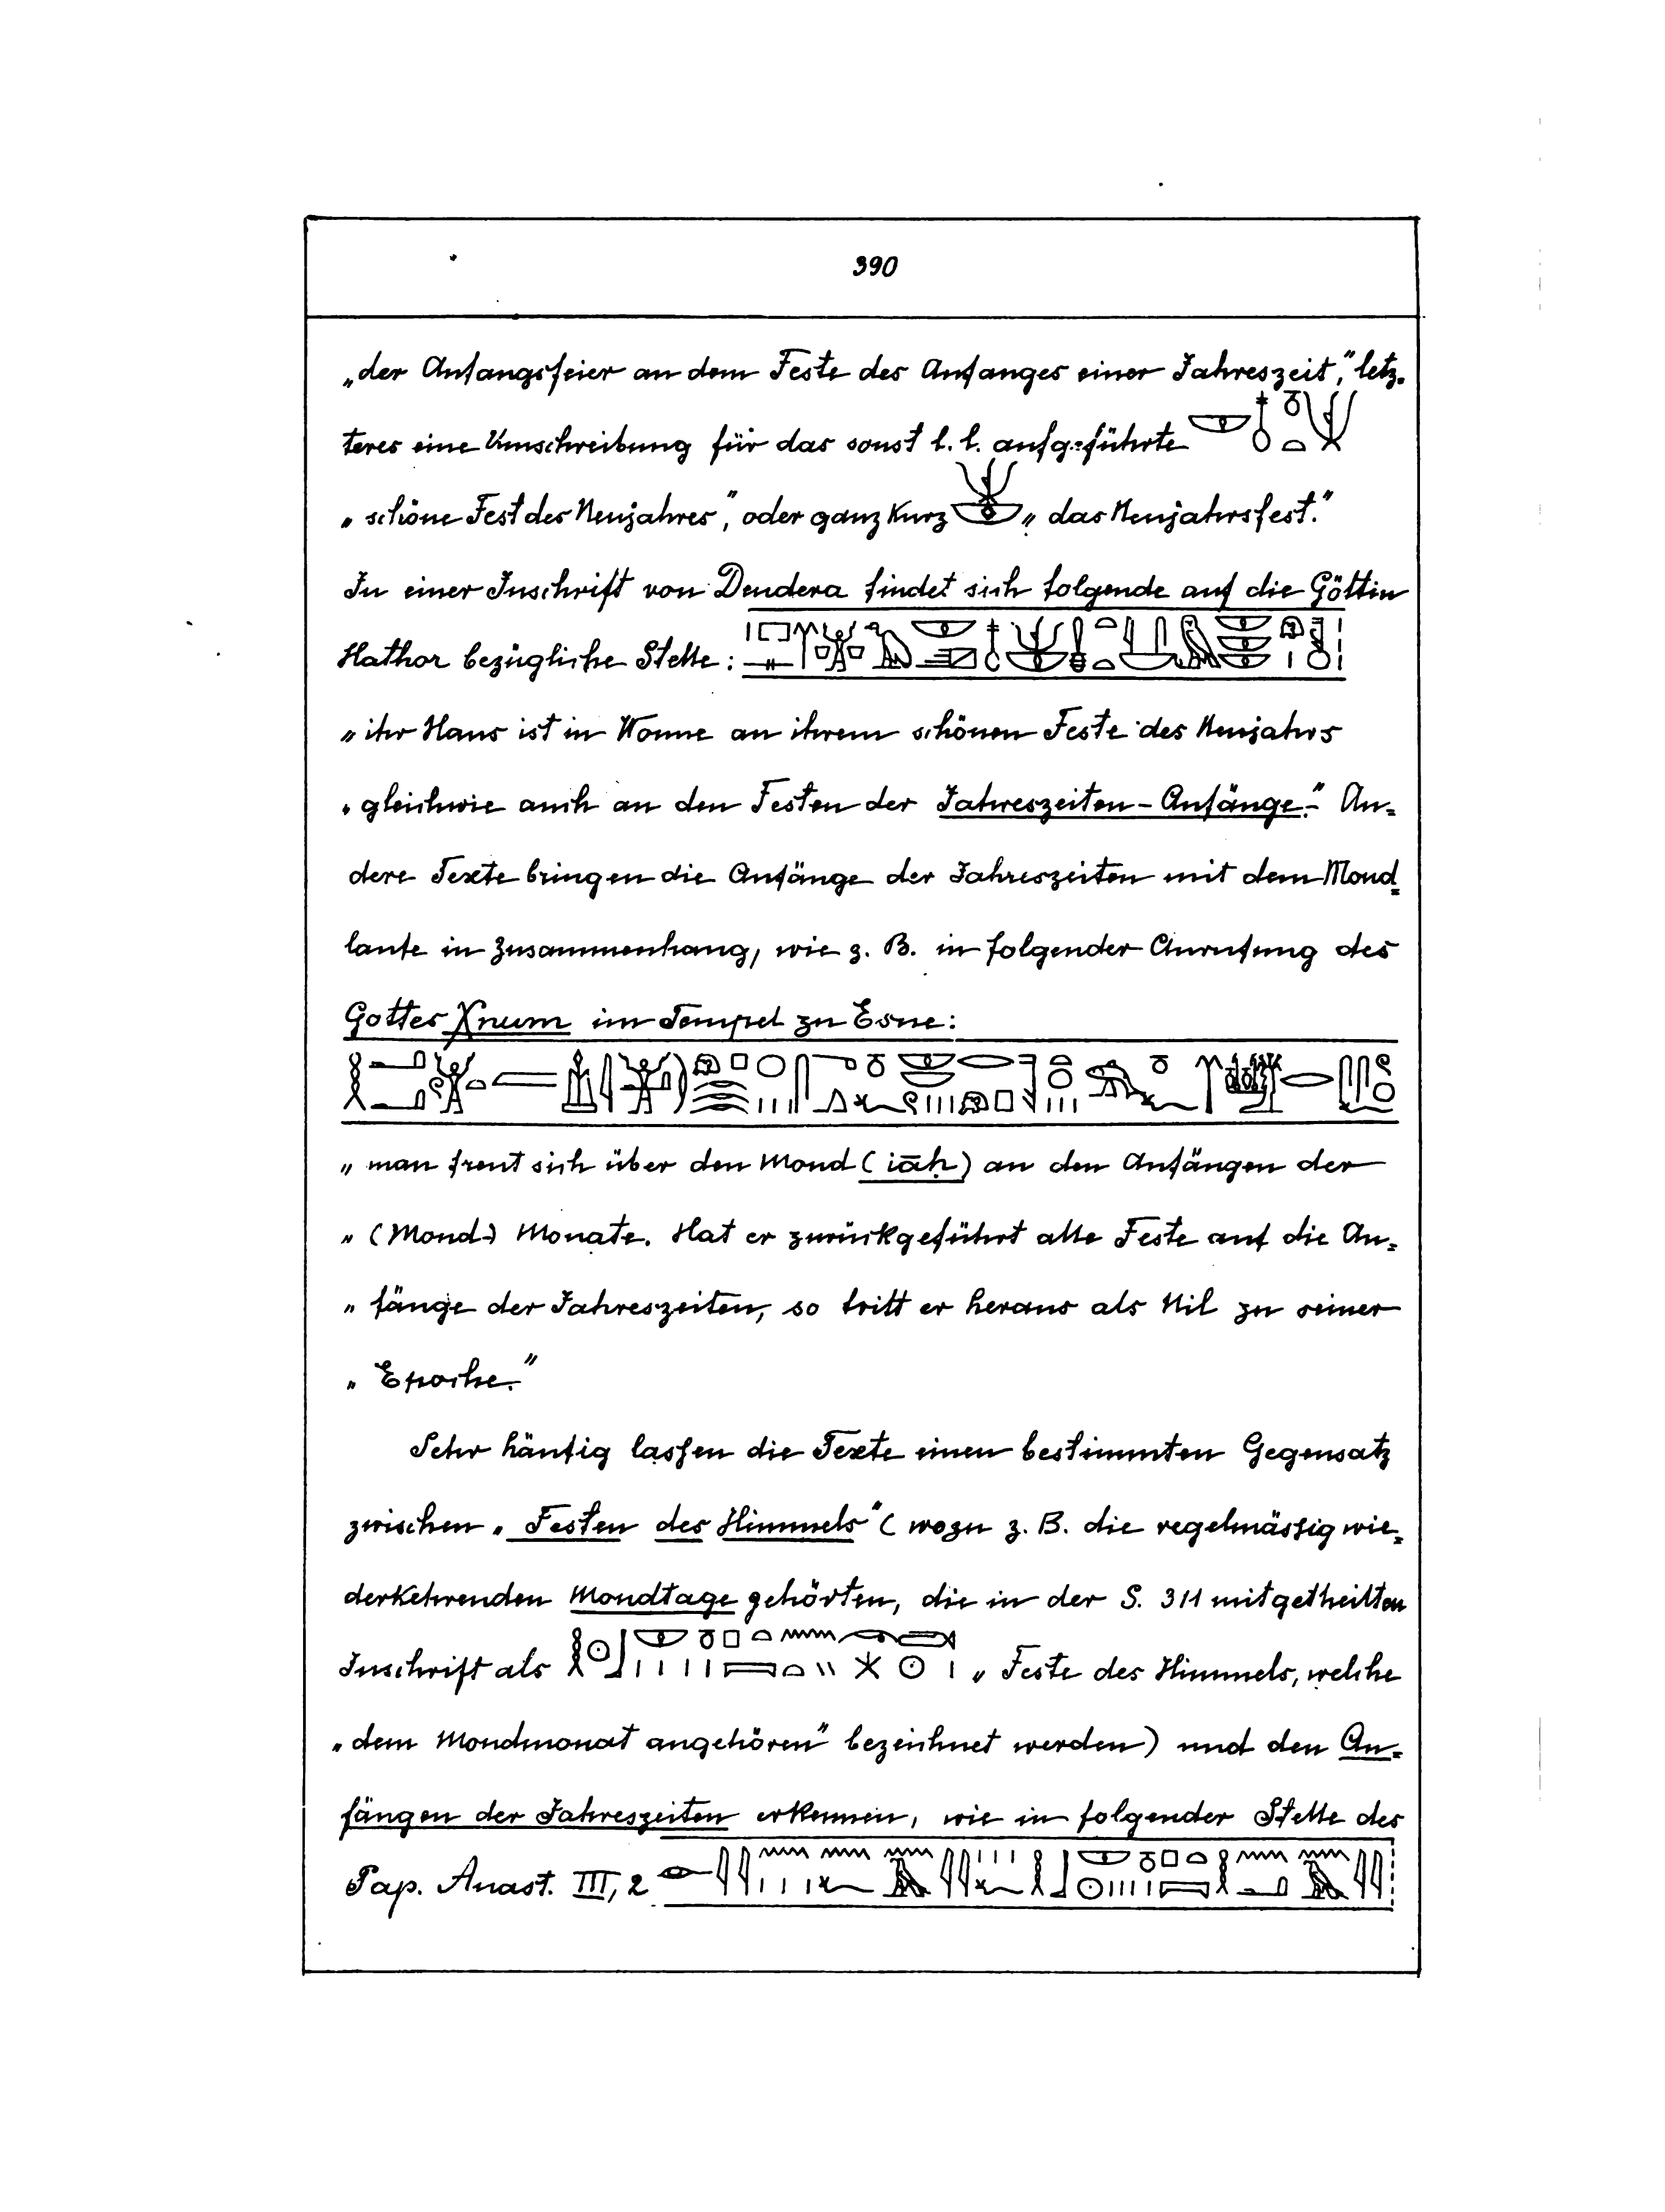 390
„der Anfangsfeier an dem Feste des Anfanges einer Jahreszeit," letz-
teres eine Umschreibung für das sonst l. l. aufgeführte
„schöne Fest des Neujahres", oder ganz kurz „das Neujahrsfest."
In einer Inschrift von Dendera findet sich folgende auf die Göttin
Hathor bezügliche Stelle:
„ihr Haus ist in Wonne an ihrem schönen Feste des Neujahrs
„gleichwie auch an den Festen der Jahreszeiten-Anfänge." An=
dere Texte bringen die Anfänge der Jahreszeiten mit dem Mond=
laufe in Zusammenhang, wie z. B. in folgender Anrufung des
Gottes Xnum im Tempel zu Esne:
„man freut sich über den Mond (iāḥ) an den Anfängen der
„(Mond-) Monate. Hat er zurückgeführt alle Feste auf die An=
„fänge der Jahreszeiten, so tritt er heraus als Nil zu seiner
„Epoche."
Sehr häufig lassen die Texte einen bestimmten Gegensatz
zwischen „Festen des Himmels" (wozu z. B. die regelmässig wie=
derkehrenden Mondtage gehörten, die in der S. 311 mitgetheilten
Inschrift als „Feste des Himmels, welche
„dem Mondmonat angehören" bezeichnet werden) und den An=
fängen der Jahreszeiten erkennen, wie in folgender Stelle des
Pap. Anast. III, 2